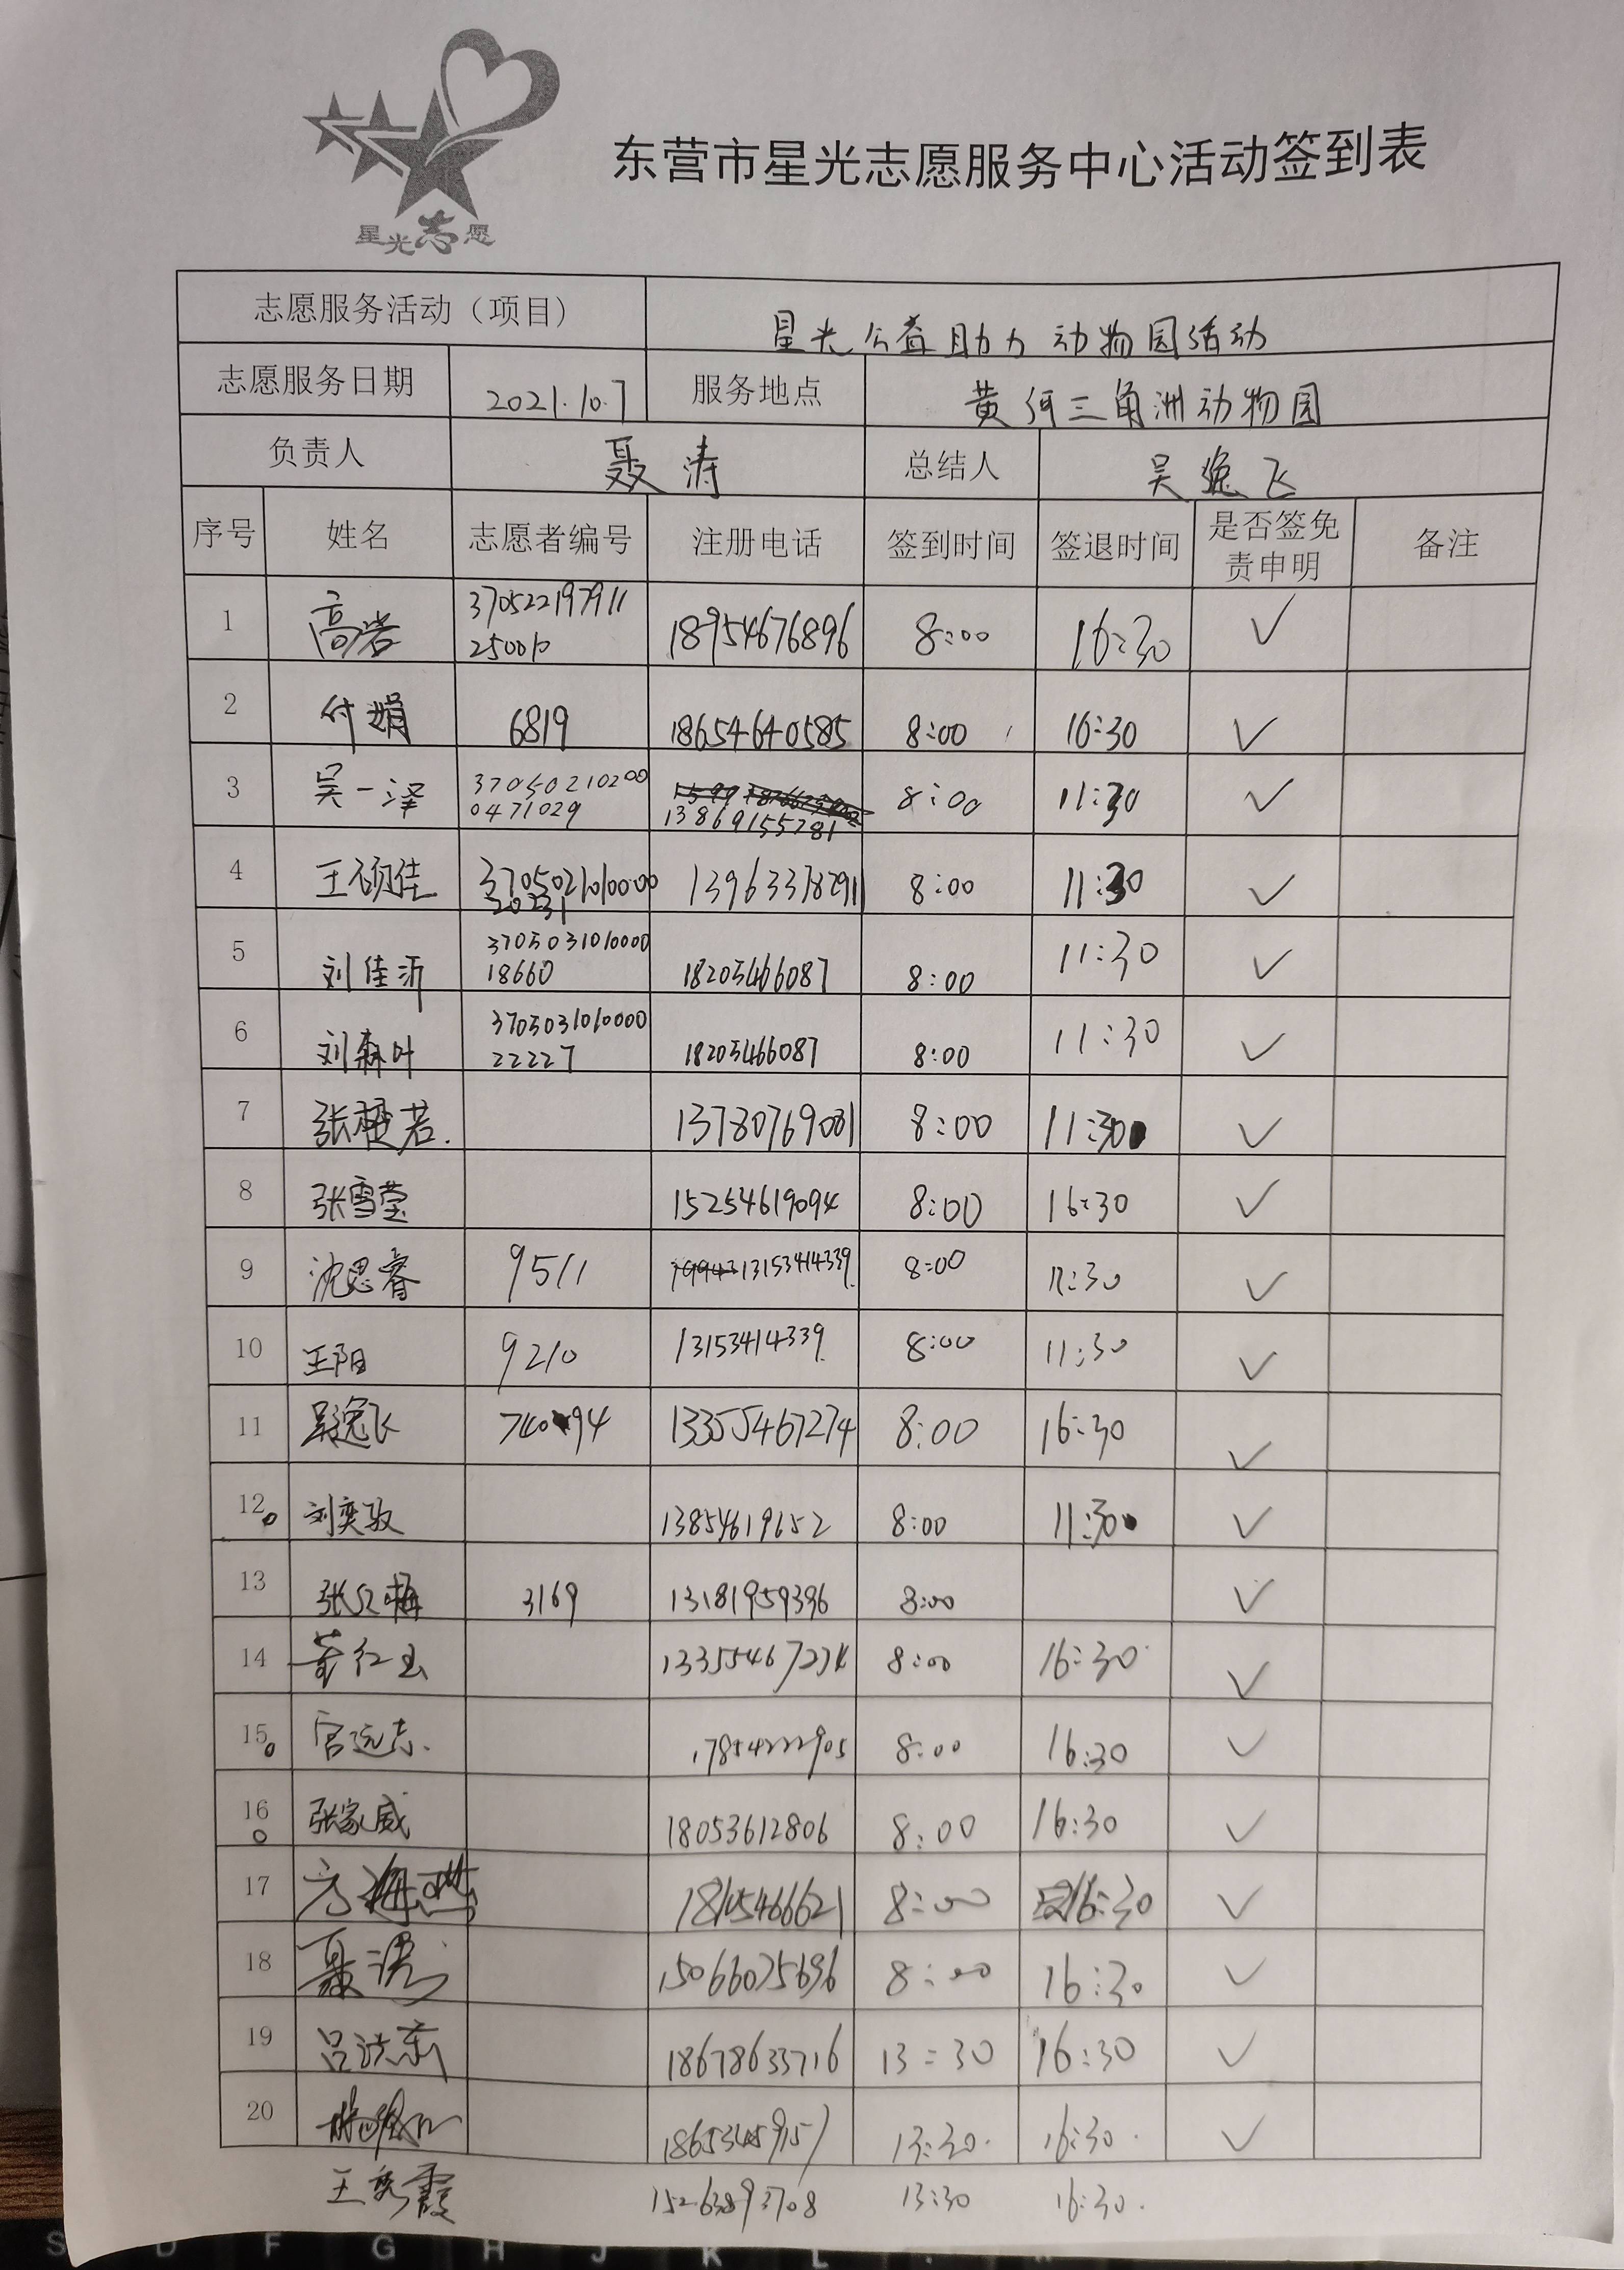 星光志愿
东营市星光志愿服务中心活动签到表
志愿服务活动（项目） 星光公益助力动物园活动
志愿服务日期 2021.10.7 服务地点 黄河三角洲动物园
负责人 聂涛 总结人 吴逸飞
序号 姓名 志愿者编号 注册电话 签到时间 签退时间 是否签免责申明 备注
1 高岩 18954676896 8:00 16:30 ✓
2 付娟 6819 18654640585 8:00 16:30 ✓
3 吴一泽 13869155781 8:00 11:30 ✓
4 王硕佳 8:00 11:30 ✓
5 刘佳沂 3705031010000
18660 18205466087 8:00 11:30 ✓
6 刘森叶 3705031010000
22227 18205466087 8:00 11:30 ✓
7 13780769081 8:00 11:30 ✓
8 张雪莹 15254619094 8:00 16:30 ✓
9 沈思睿 9511 13153414339 8:00 ✓
10 王阳 9210 13153414339 8:00 11:30 ✓
11 吴逸飞 13355467274 8:00 16:30 ✓
12 刘奕驭 13854619652 8:00 11:30 ✓
13 3169 13181959396 8:00 ✓
14 董红玉 13355467274 8:00 16:30 ✓
15 宫远志 17854222905 8:00 16:30 ✓
16 张家威 18053612806 8:00 16:30 ✓
17 8:00 16:30 ✓
18 聂涛 15066075696 8:00 16:30 ✓
19 18678633716 13:30 16:30 ✓
20 13:30 16:30 ✓
王秀霞 15263893708 13:30 16:30
S D F G H J K L